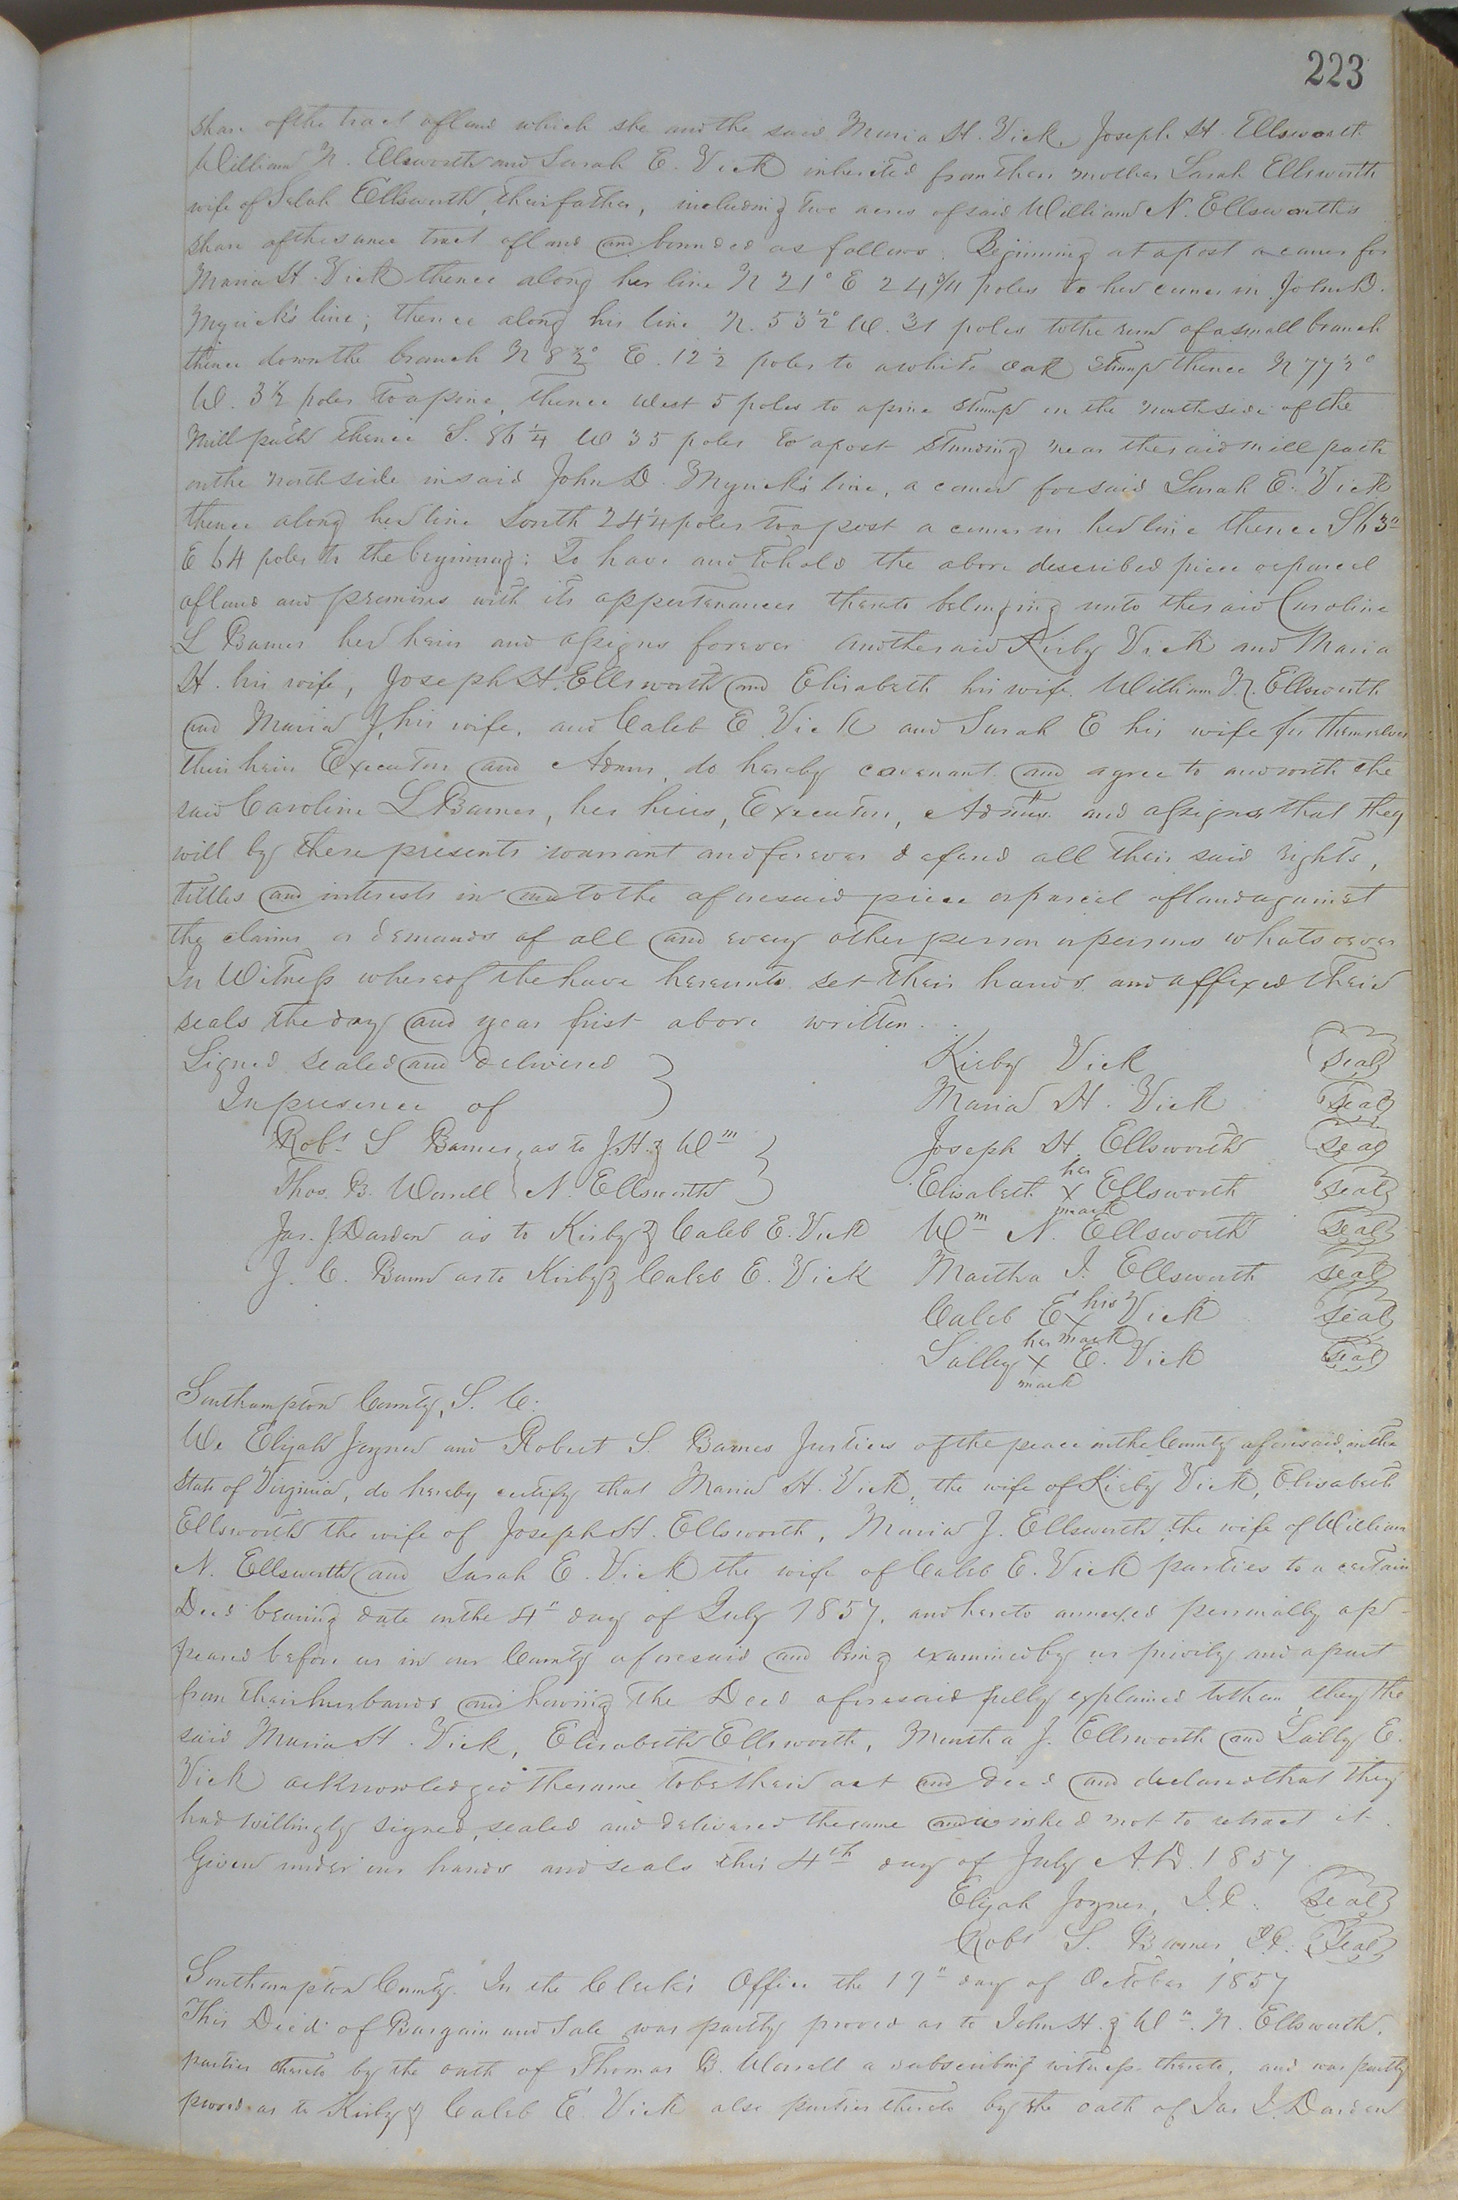 223
share of the tract of land which she and the said Maria H. Vick, Joseph H. Ellsworth
William N. Ellsworth and Sarah E. Vick inherited from their mother Sarah Ellsworth
wife of Selah Ellsworth, their father, including two acres of said William N. Ellsworth's
share of the same tract of land and bounded as follows. Beginning at a post a corner for
Maria H. Vick thence along her line N 21° E 24 poles to her corner in John D.
Myrick's line; thence along his line N. 53½° W. 31 poles to the run of a small branch
thence down the branch N 8½° E. 12½ poles to a white oak stump thence N 77½°
W. 3½ poles to a pine, thence West 5 poles to a pine stump on the north side of the
mill path thence S. 86¼ W 35 poles to a post standing near the said mill path
on the north side in said John D. Myrick's line, a corner for said Sarah E. Vick
thence along her line South 24¼ poles to a post a corner in her line thence S
E 64 poles to the beginning: To have and to hold the above described piece or parcel
of land and premises with its appertenances thereto belonging unto the said Caroline
L Barnes her heirs and assigns forever and the said Kirby Vick and Maria
H. his wife, Joseph H. Ellsworth and Elisabeth his wife, William N. Ellsworth
and Maria J. his wife, and Caleb E. Vick and Sarah E his wife for themselves
their heirs Executors and Admrs, do hereby covenant and agree to and with the
said Caroline L Barnes, her heirs, Executors, Admrs. and assigns that they
will by these presents warrant and forever defend all their said rights,
tittles and interests in and to the aforesaid piece or parcel of land against
the claims or demands of all and every other person or persons whatsoever
In Witness whereof the have hereunto set their hands and affixed their
seals the day and year first above written.
Signed sealed and delivered } Kirby Vick Seal
In presence of Maria H. Vick Seal
Robt S Barnes, as to J.H. & Wm } Joseph H. Ellsworth Seal
her
Thos. B. Worrell } N. Ellsworth Elisabeth x Ellsworth Seal
mark
Jas. J. Darden as to Kirby & Caleb E. Vick Wm N. Ellsworth Seal
J. C. as to Kirby & Caleb E. Vick Martha J. Ellsworth Seal
Caleb E his x Vick Seal
her mark
Salley x E. Vick Seal
mark
Southampton County, S. C:
We Elijah Joyner and Robert S. Barnes Justices of the peace in the County aforesaid, in the
State of Virginia, do hereby certify that Maria H. Vick, the wife of Kirby Vick, Elisabeth
Ellsworth the wife of Joseph H. Ellsworth, Maria J. Ellsworth the wife of William
N. Ellsworth and Sarah E. Vick the wife of Caleb E. Vick parties to a certain
Deed bearing date on the 4" day of July 1857, and hereto annexed personally ap-
peared before us in our County aforesaid and being examined by us privily and apart
from their husbands and having the Deed aforesaid fully explained to them they the
said Maria H. Vick, Elisabeth Ellsworth, Martha J. Ellsworth and Sally E.
Vick acknowledged the same to be their act and deed and declared that they
had willingly signed, sealed and delivered the same and wished not to retract it.
Given under our hands and seals this 4th day of July A.D. 1857.
Elijah Joyner, J.P. Seal
Robt S. Barnes J.P. Seal
Southampton County. In the Clerk's Office the 19" day of October 1857
This Deed of Bargain and Sale was partly proved as to John H. & Wm. N. Ellsworth,
parties thereto by the oath of Thomas B. Worrell a subscribing witness thereto, and was partly
proved as to Kirby & Caleb E. Vick also parties thereto by the oath of Jas J. Darden